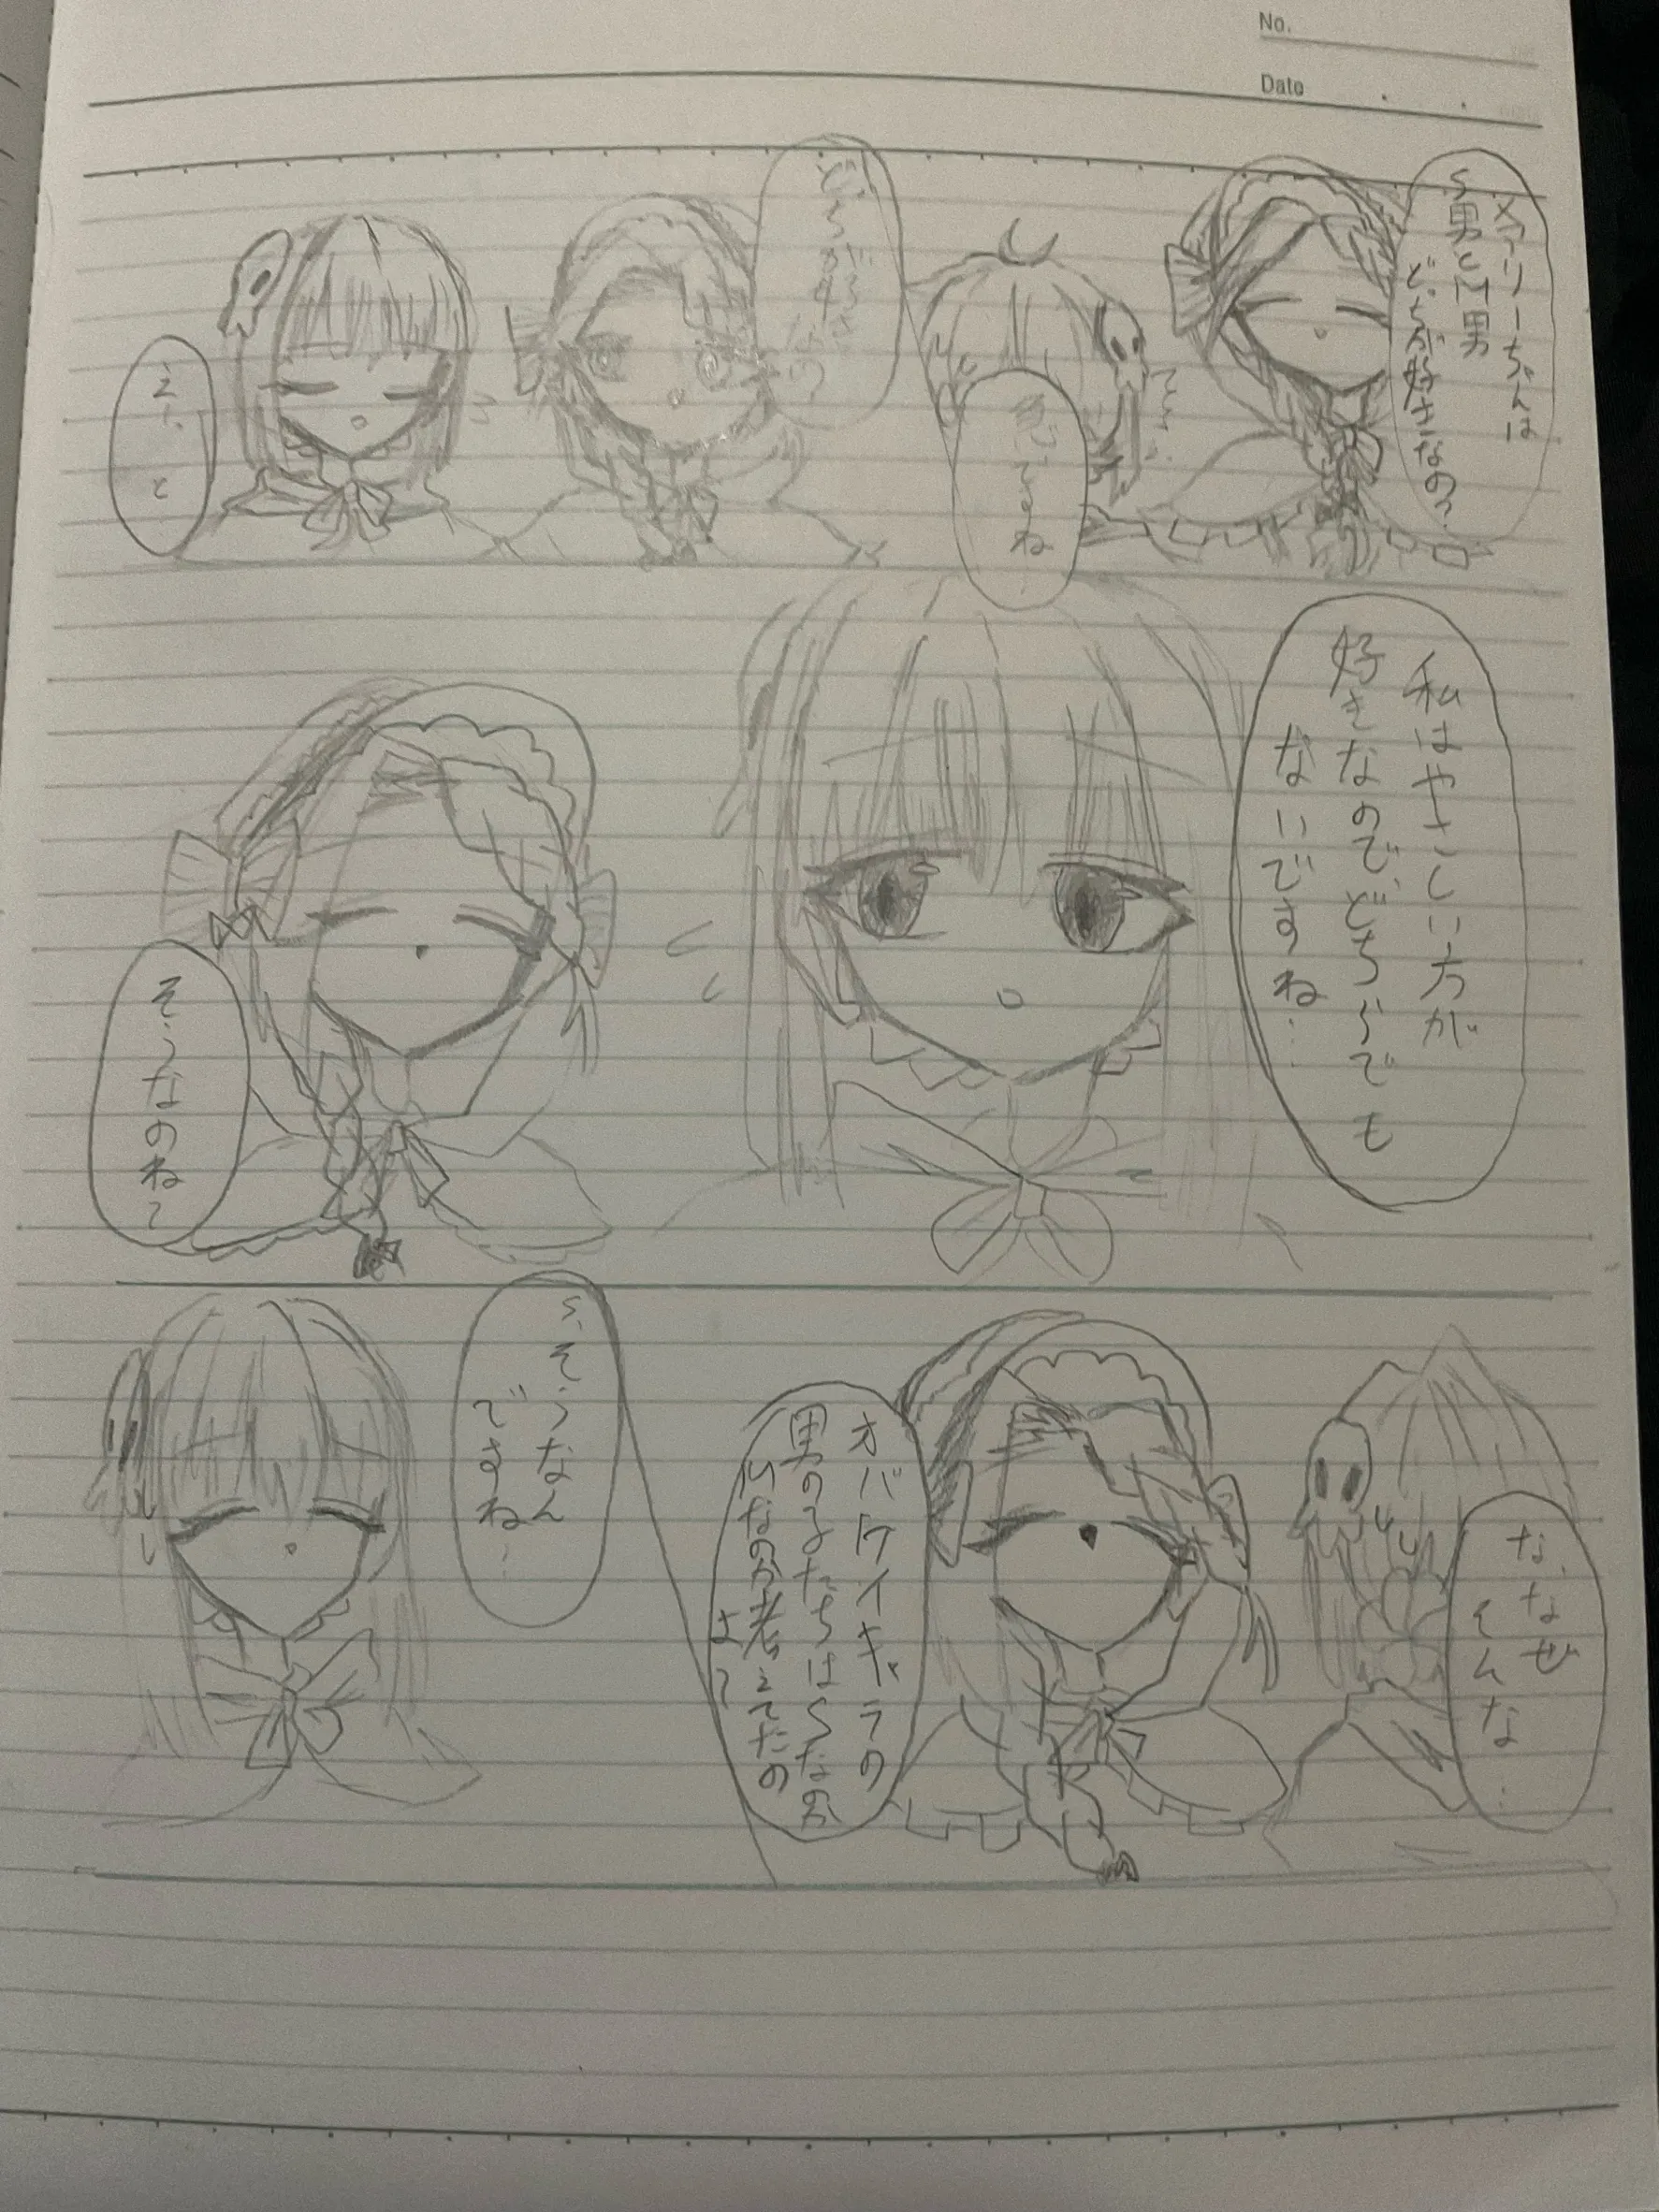 No.
Date
メアリーちゃんは
S男とM男
どっちが好きなの?
ですね
どっちが好きなの?
えーと
私はやさしい方が
好きなので、どちらでも
ないですね…
そうなのね〜
な、なぜ
そんな…
オバケイキャラの
男の子たちはSなのか
Mなのか考えてたの
よ〜
そ、そうなん
ですね…